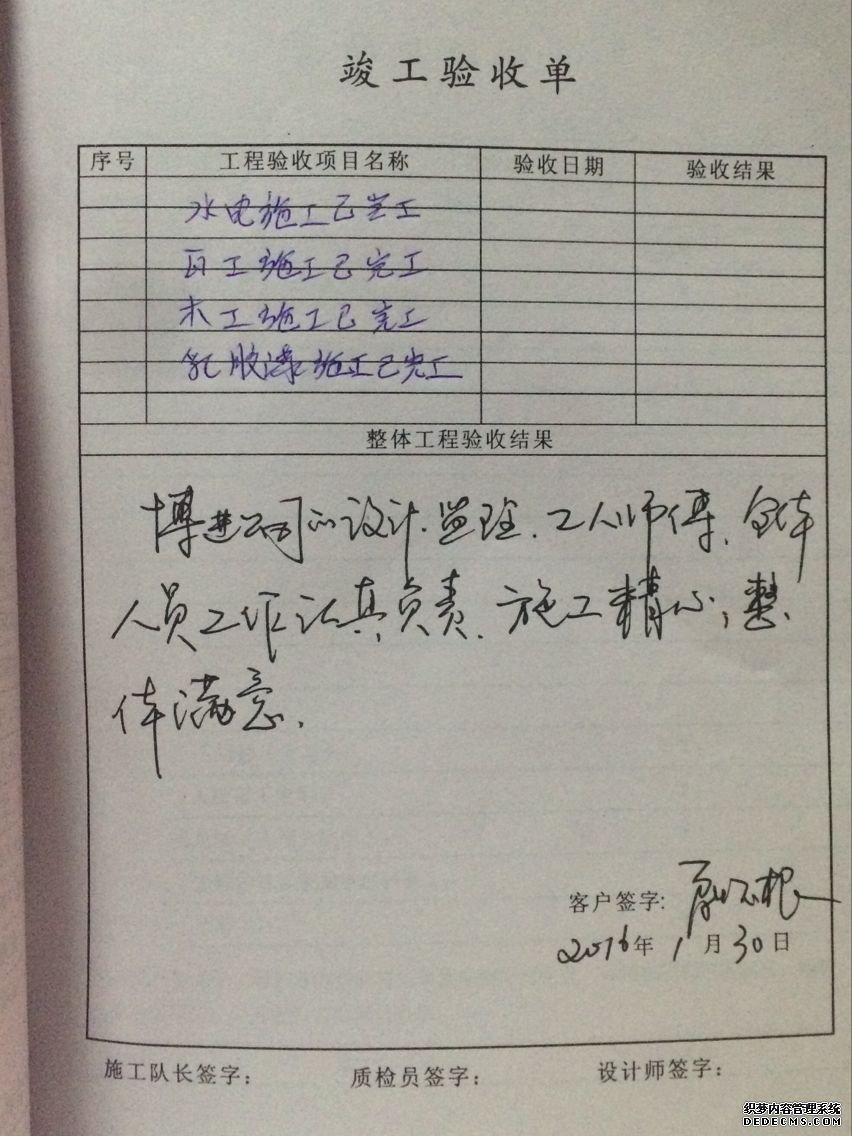 竣工验收单
序号 工程验收项目名称 验收日期 验收结果
水电施工已完工
瓦工施工已完工
木工施工已完工
乳胶漆施工已完工
整体工程验收结果
博进公司的设计.监理.工人师傅.全体
人员工作认真负责.施工精心,整
体满意.
客户签字:
2016年1月30日
施工队长签字: 质检员签字: 设计师签字:
织梦内容管理系统
DEDECMS.COM